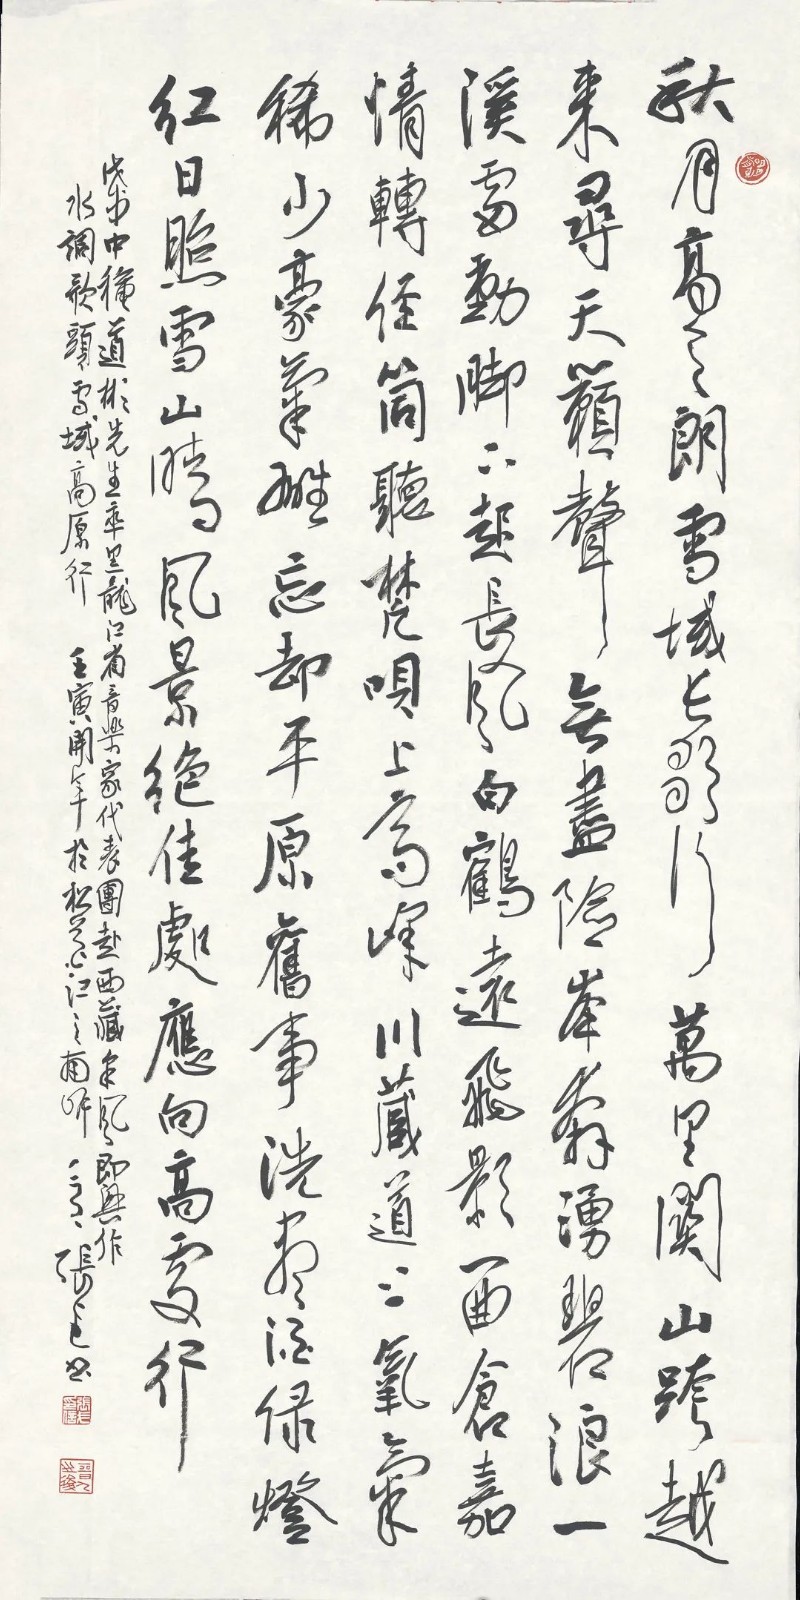 秋月高高朗雪域七彩行萬里關山跨越
來尋天籟聲無盡險峯奔湧碧浪一
溪雷動腳下起長風白鶴遠飛影一曲倉嘉
情轉經筒聽梵唄上高峰川藏道上氧氣
稀少豪氣難忘却平原舊事洗盡酒綠燈
紅日照雪山曉風景絕佳處應向高處行
戊戌中穐道彬先生率黑龍江省音樂家代表團赴西藏采風即興作
水調歌頭雪域高原行 壬寅開年於松花江之南岸 張 書